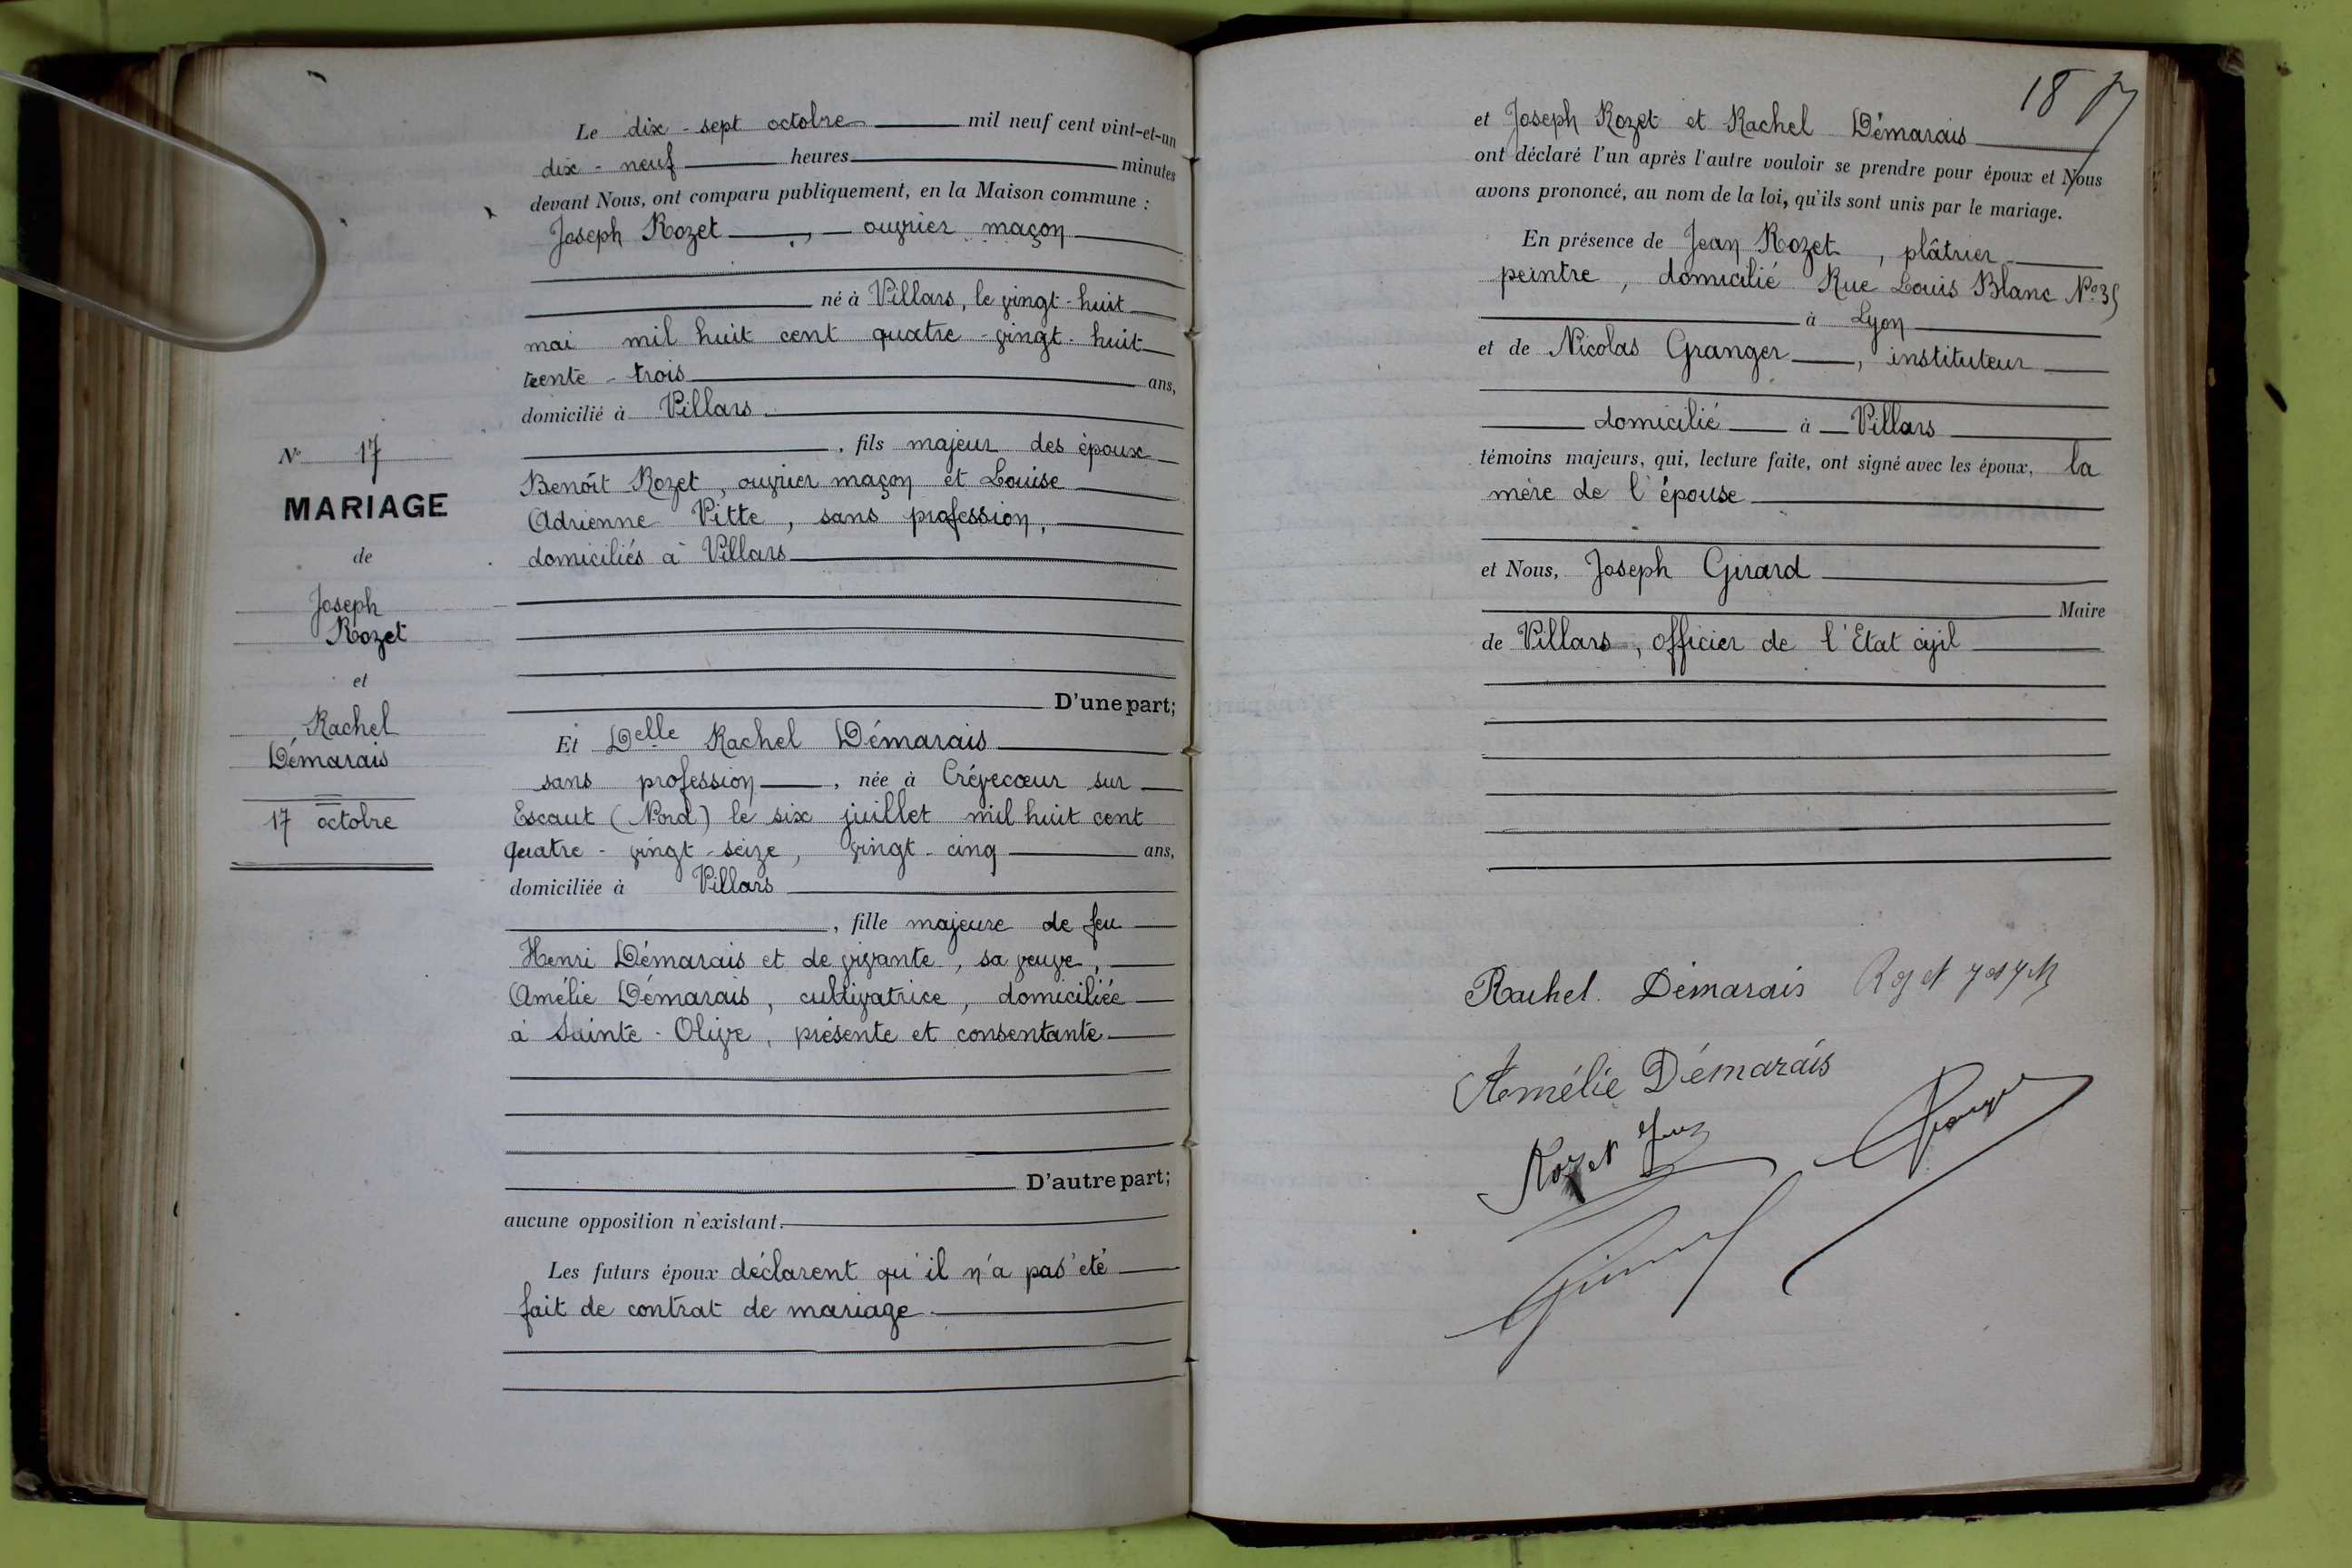 Le dix-sept octobre mil neuf cent vint-et-un
dix-neuf heures minutes
devant Nous, ont comparu publiquement, en la Maison commune :
Joseph Rozet, ouvrier maçon
né à Villars, le vingt-huit
mai mil huit cent quatre-vingt-huit
trente-trois ans,
domicilié à Villars
, fils majeur des époux
Benoît Rozet, ouvrier maçon et Louise
Adrienne Vitte, sans profession,
domiciliés à Villars
D'une part;
Et Delle Rachel Démarais
sans profession, née à Crévecœur sur
Escaut (Nord) le six juillet mil huit cent
quatre-vingt-seize, vingt-cinq ans,
domiciliée à Villars
, fille majeure de feu
Henri Démarais et de vivante, sa veuve,
Amélie Démarais, cultivatrice, domiciliée
à Sainte-Olive, présente et consentante
D'autre part;
aucune opposition n'existant.
Les futurs époux déclarent qu'il n'a pas été
fait de contrat de mariage
No 17
MARIAGE
de
Joseph
Rozet
et
Rachel
Démarais
17 octobre
18
et Joseph Rozet et Rachel Démarais
ont déclaré l'un après l'autre vouloir se prendre pour époux et Nous
avons prononcé, au nom de la loi, qu'ils sont unis par le mariage.
En présence de Jean Rozet, plâtrier
peintre, domicilié Rue Louis Blanc No 35
à Lyon
et de Nicolas Granger, instituteur
domicilié à Villars
témoins majeurs, qui, lecture faite, ont signé avec les époux, la
mère de l'épouse
et Nous, Joseph Girard
Maire
de Villars, officier de l'Etat civil
Rachel Démarais Rozet
Amélie Démarais
Rozet Jean
Granger
Girard